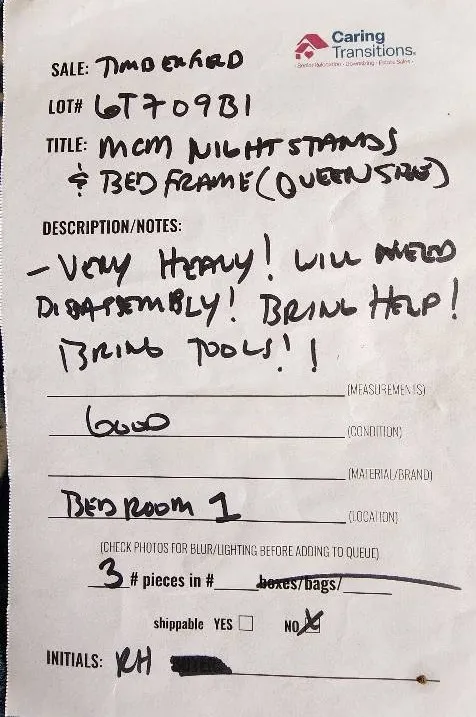 Caring
Transitions®
Senior Relocation • Downsizing • Estate Sales
SALE: TIMBERFIELD
LOT# 6T709B1
TITLE: MCM NIGHTSTANDS
& BED FRAME (QUEEN SIZE)
DESCRIPTION/NOTES:
- VERY HEAVY! WILL NEED
DISASSEMBLY! BRING HELP!
BRING TOOLS!!
(MEASUREMENTS)
GOOD (CONDITION)
(MATERIAL/BRAND)
BEDROOM 1 (LOCATION)
(CHECK PHOTOS FOR BLUR/LIGHTING BEFORE ADDING TO QUEUE)
3 # pieces in # boxes/bags/
shippable YES NO X
INITIALS: RH